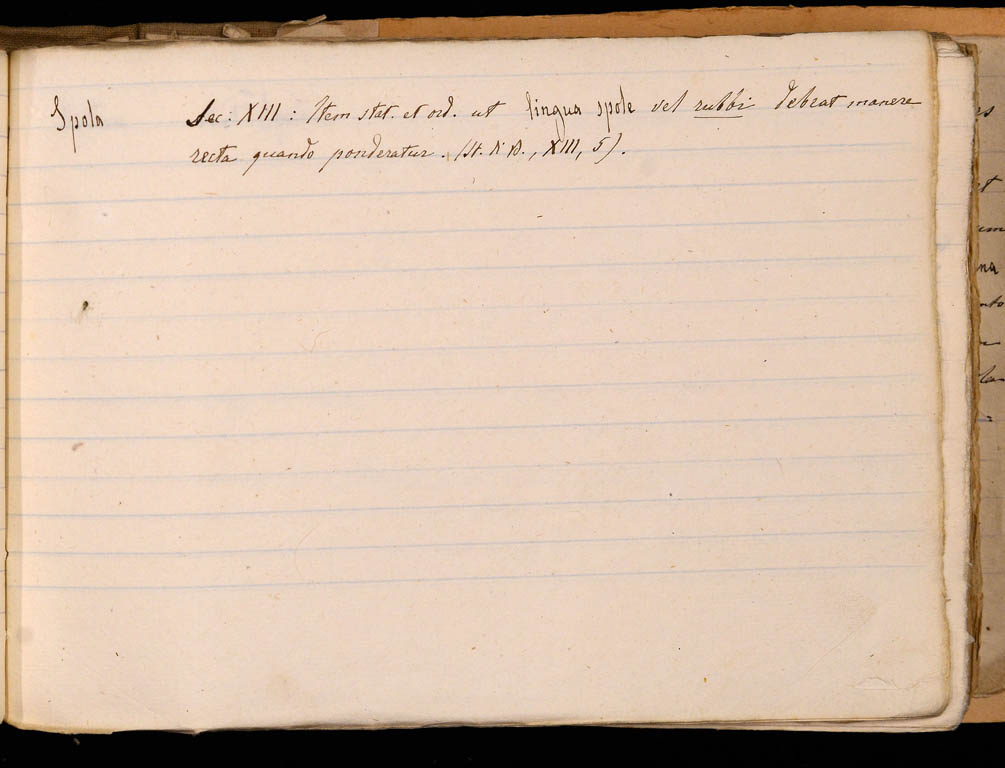 Spola Sec: XIII: Item stat. et ord. ut lingua spole vel rubbi debeat manere
recta quando ponderatur. (St. di B., XIII, 5).